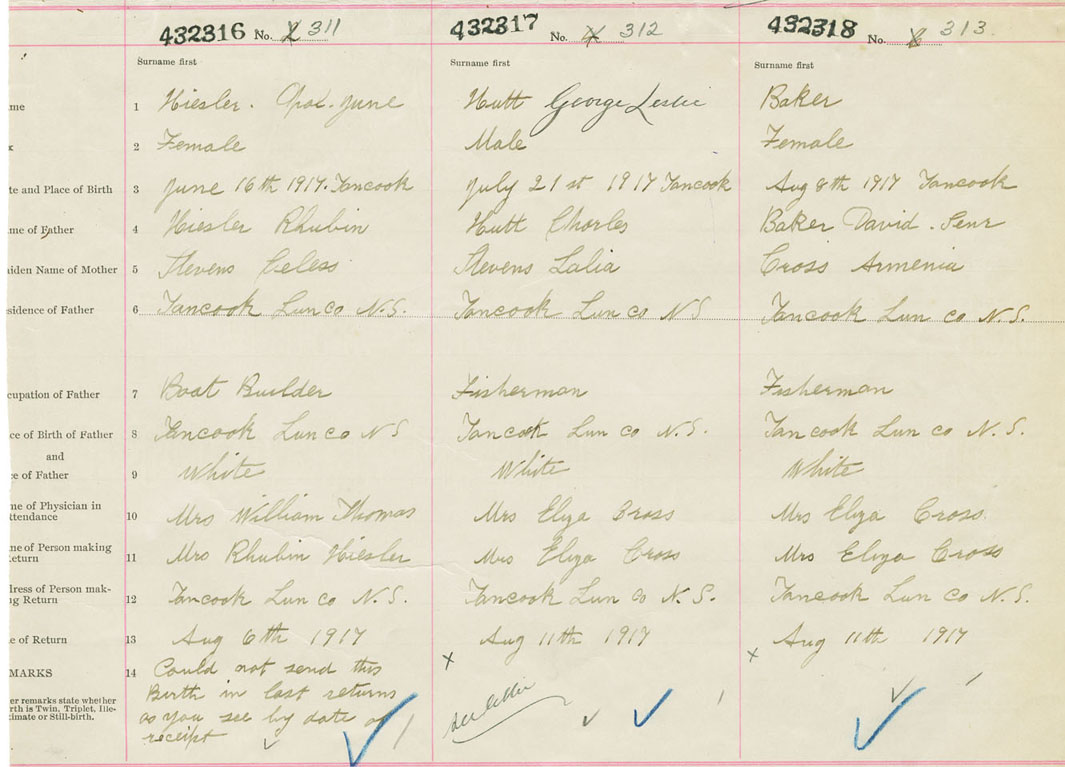 432316 No. 2 311
432317 No. 4 312
432318 No. 6 313.
Surname first
Surname first
Surname first
me 1 Hiesler. Opal. June
Hutt George Leslie
Baker
x 2 Female
Male
Female
te and Place of Birth 3 June 16th 1917. Tancook
July 21st 1917 Tancook
Aug 8th 1917 Tancook
me of Father 4 Hiesler Rhubin
Hutt Charles
Baker David. Senr
aiden Name of Mother 5 Stevens Celess
Stevens Lalia
Cross Armenia
sidence of Father 6 Tancook Lun co N.S.
Tancook Lun co N S
Tancook Lun co N.S.
cupation of Father 7 Boat Builder
Fisherman
Fisherman
ce of Birth of Father 8 Tancook Lun co N S
Tancook Lun co N.S.
Tancook Lun co N.S.
and
ce of Father 9 White
White
White
me of Physician in
ttendance 10 Mrs William Thomas
Mrs Eliza Cross
Mrs Eliza Cross
me of Person making
eturn 11 Mrs Rhubin Hiesler
Mrs Eliza Cross
Mrs Eliza Cross
dress of Person mak-
ng Return 12 Tancook Lun co N.S.
Tancook Lun co N.S.
Tancook Lun co N.S.
e of Return 13 Aug 6th 1917
x Aug 11th 1917
x Aug 11th 1917
MARKS 14 Could not send this
Birth in last returns
as you see by date of
receipt
er remarks state whether
rth is Twin, Triplet, Ille-
timate or Still-birth.
see